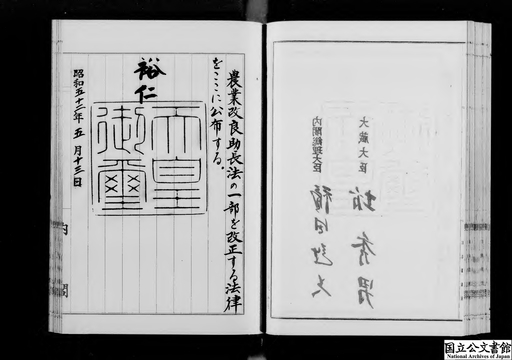 大蔵大臣 坊秀男
内閣総理大臣 福田赳夫
農業改良助長法の一部を改正する法律
をここに公布する。
裕仁
天皇
御璽
昭和五十二年五月十三日
内閣
国立公文書館
National Archives of Japan